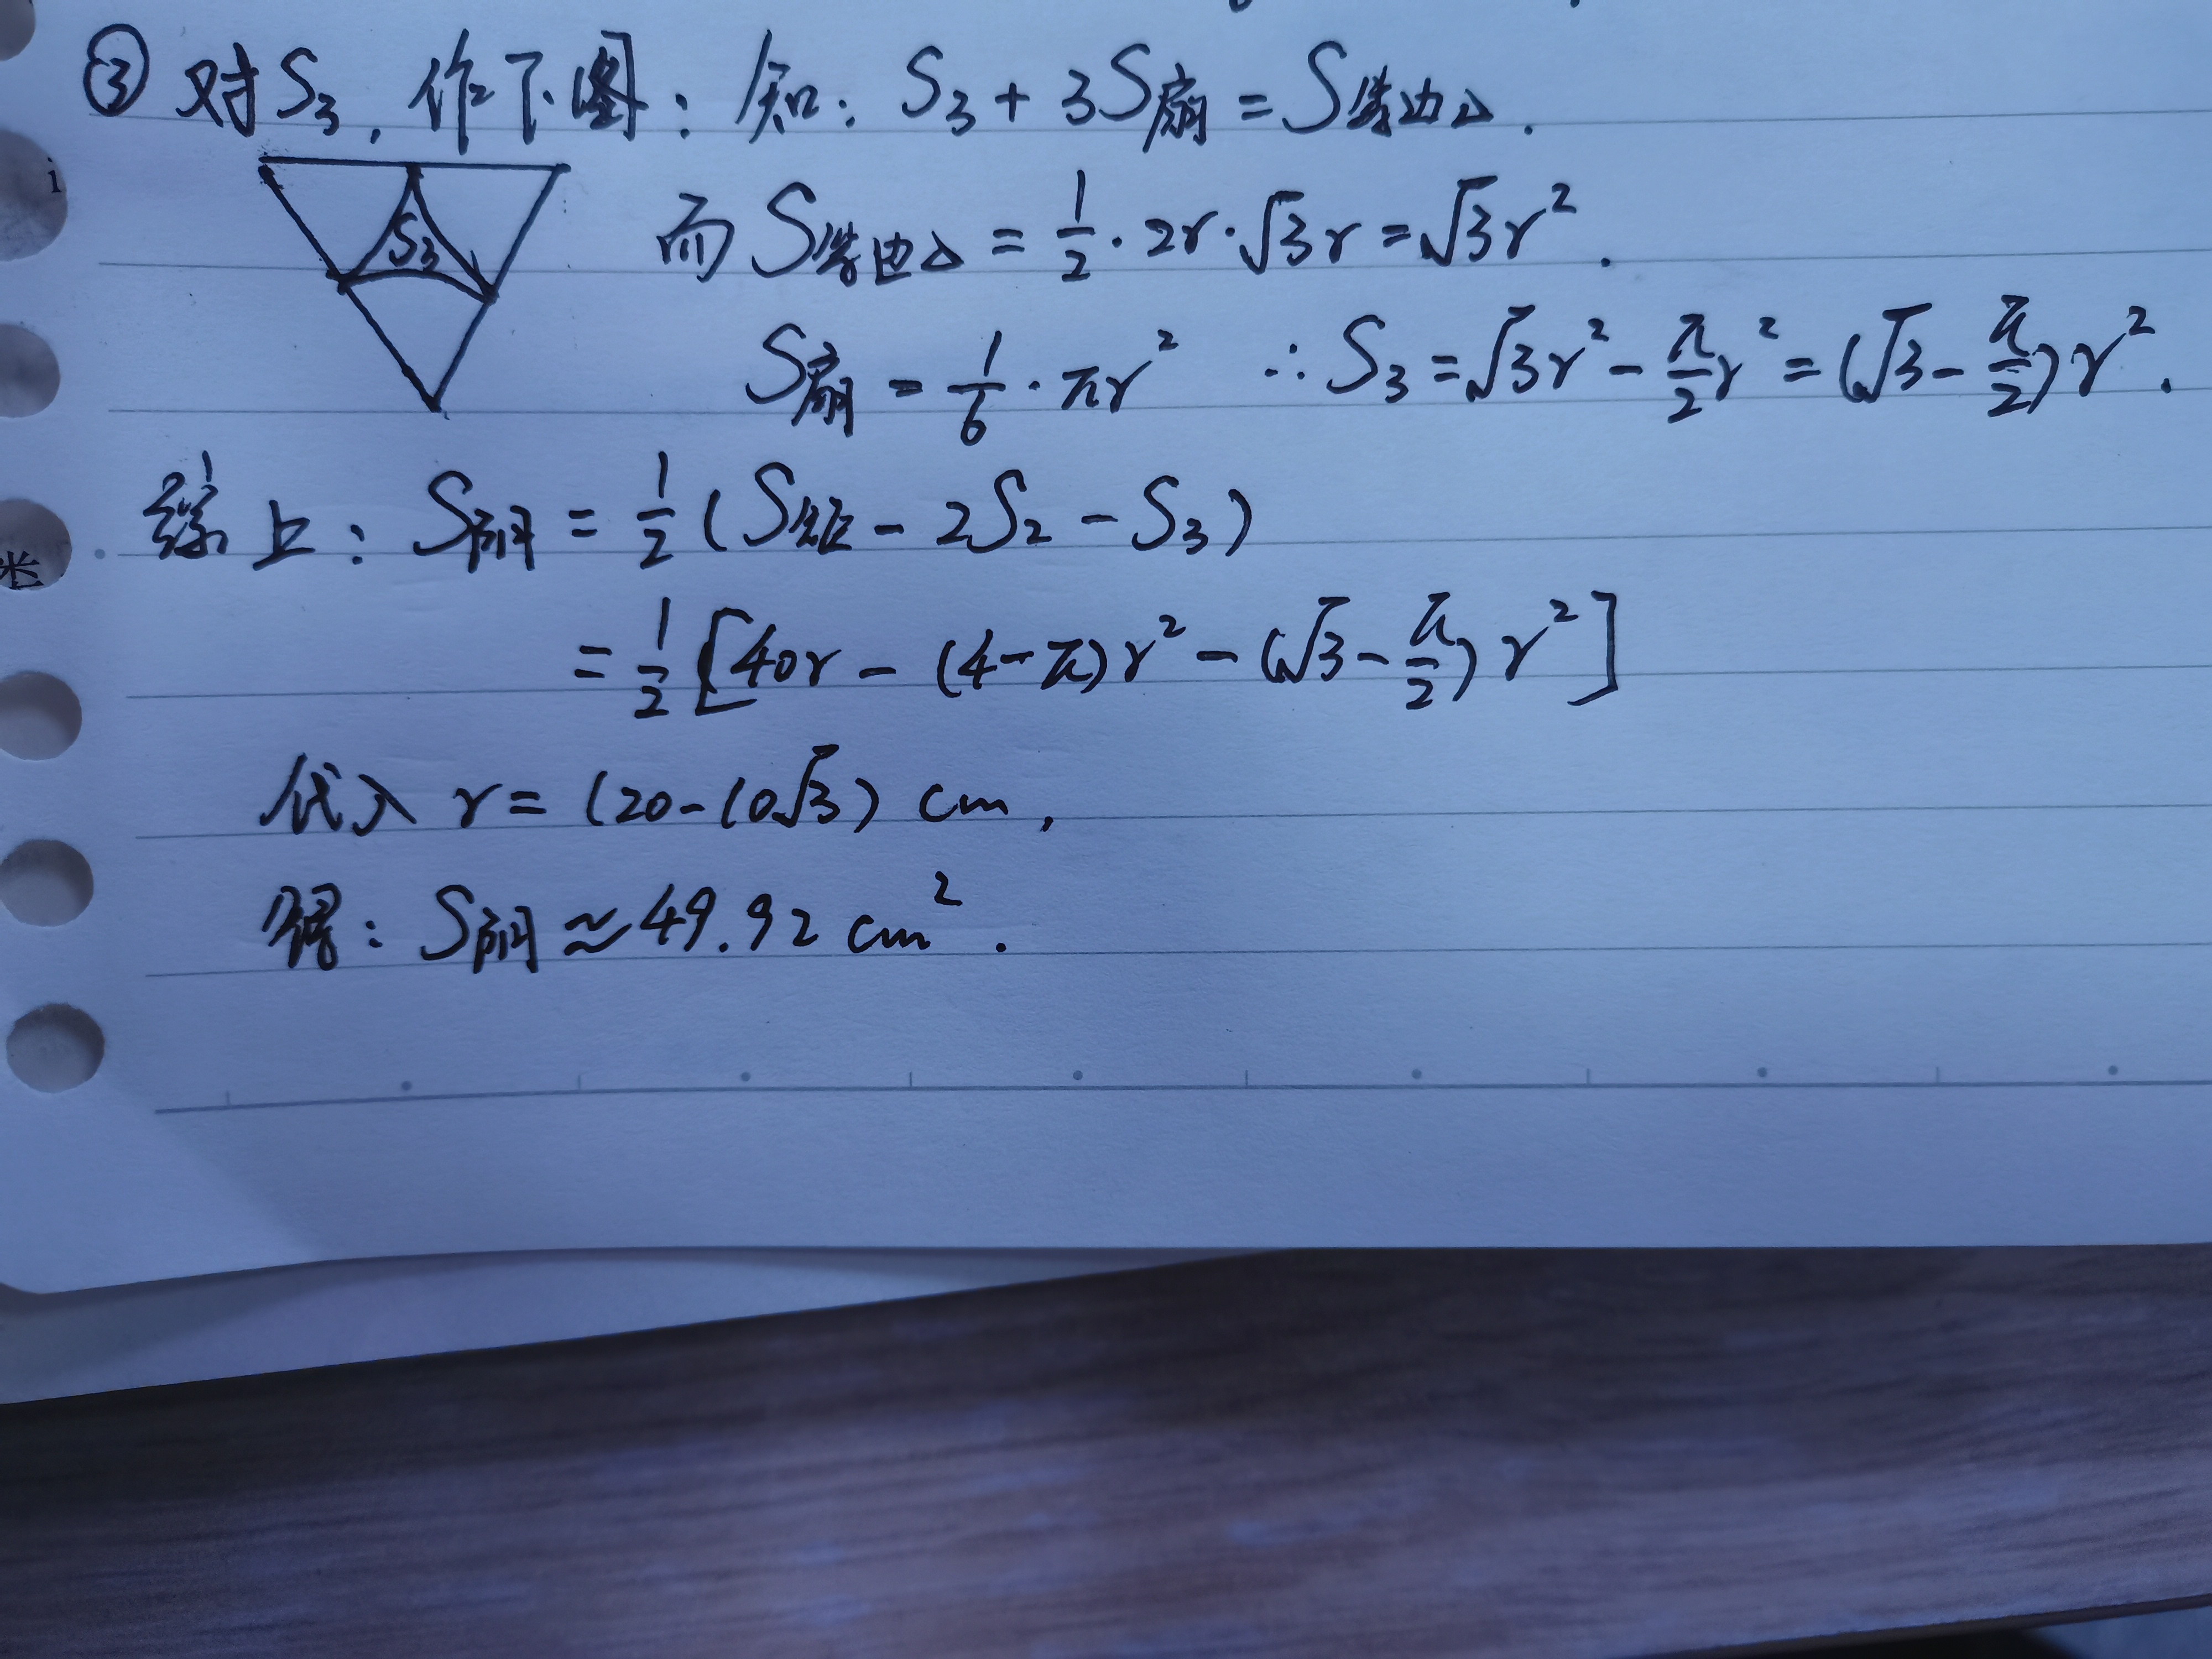 ③ 对S₃,作下图:知:S₃+3S扇=S等边△.
S₃
而S等边△=1/2·2r·√3r=√3r².
S扇=1/6·πr² ∴S₃=√3r²-π/2r²=(√3-π/2)r².
综上:S阴=1/2(S矩-2S₂-S₃)
=1/2[40r-(4-π)r²-(√3-π/2)r²]
代入 r=(20-10√3) cm,
得:S阴≈49.92 cm².
i
米